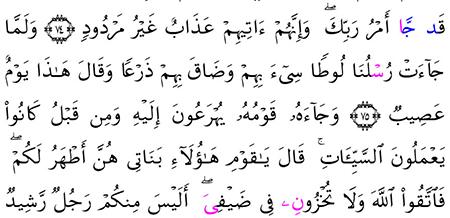 قَد جَّا أَمْرُ رَبِّكَۖ وَإِنَّهُمْ ءَاتِيهِمْ عَذَابٌ غَيْرُ مَرْدُودٍ ۝٧٤ وَلَمَّا
جَآءَتْ رُسْلُنَا لُوطًا سِيٓءَ بِهِمْ وَضَاقَ بِهِمْ ذَرْعًا وَقَالَ هَٰذَا يَوْمٌ
عَصِيبٌ ۝٧٥ وَجَآءَهُۥ قَوْمُهُۥ يُهْرَعُونَ إِلَيْهِ وَمِن قَبْلُ كَانُوا۟
يَعْمَلُونَ ٱلسَّيِّـَٔاتِۚ قَالَ يَٰقَوْمِ هَٰٓؤُلَآءِ بَنَاتِى هُنَّ أَطْهَرُ لَكُمْۖ
فَٱتَّقُوا۟ ٱللَّهَ وَلَا تُخْزُونِۦ فِى ضَيْفِىَۖ أَلَيْسَ مِنكُمْ رَجُلٌ رَّشِيدٌ